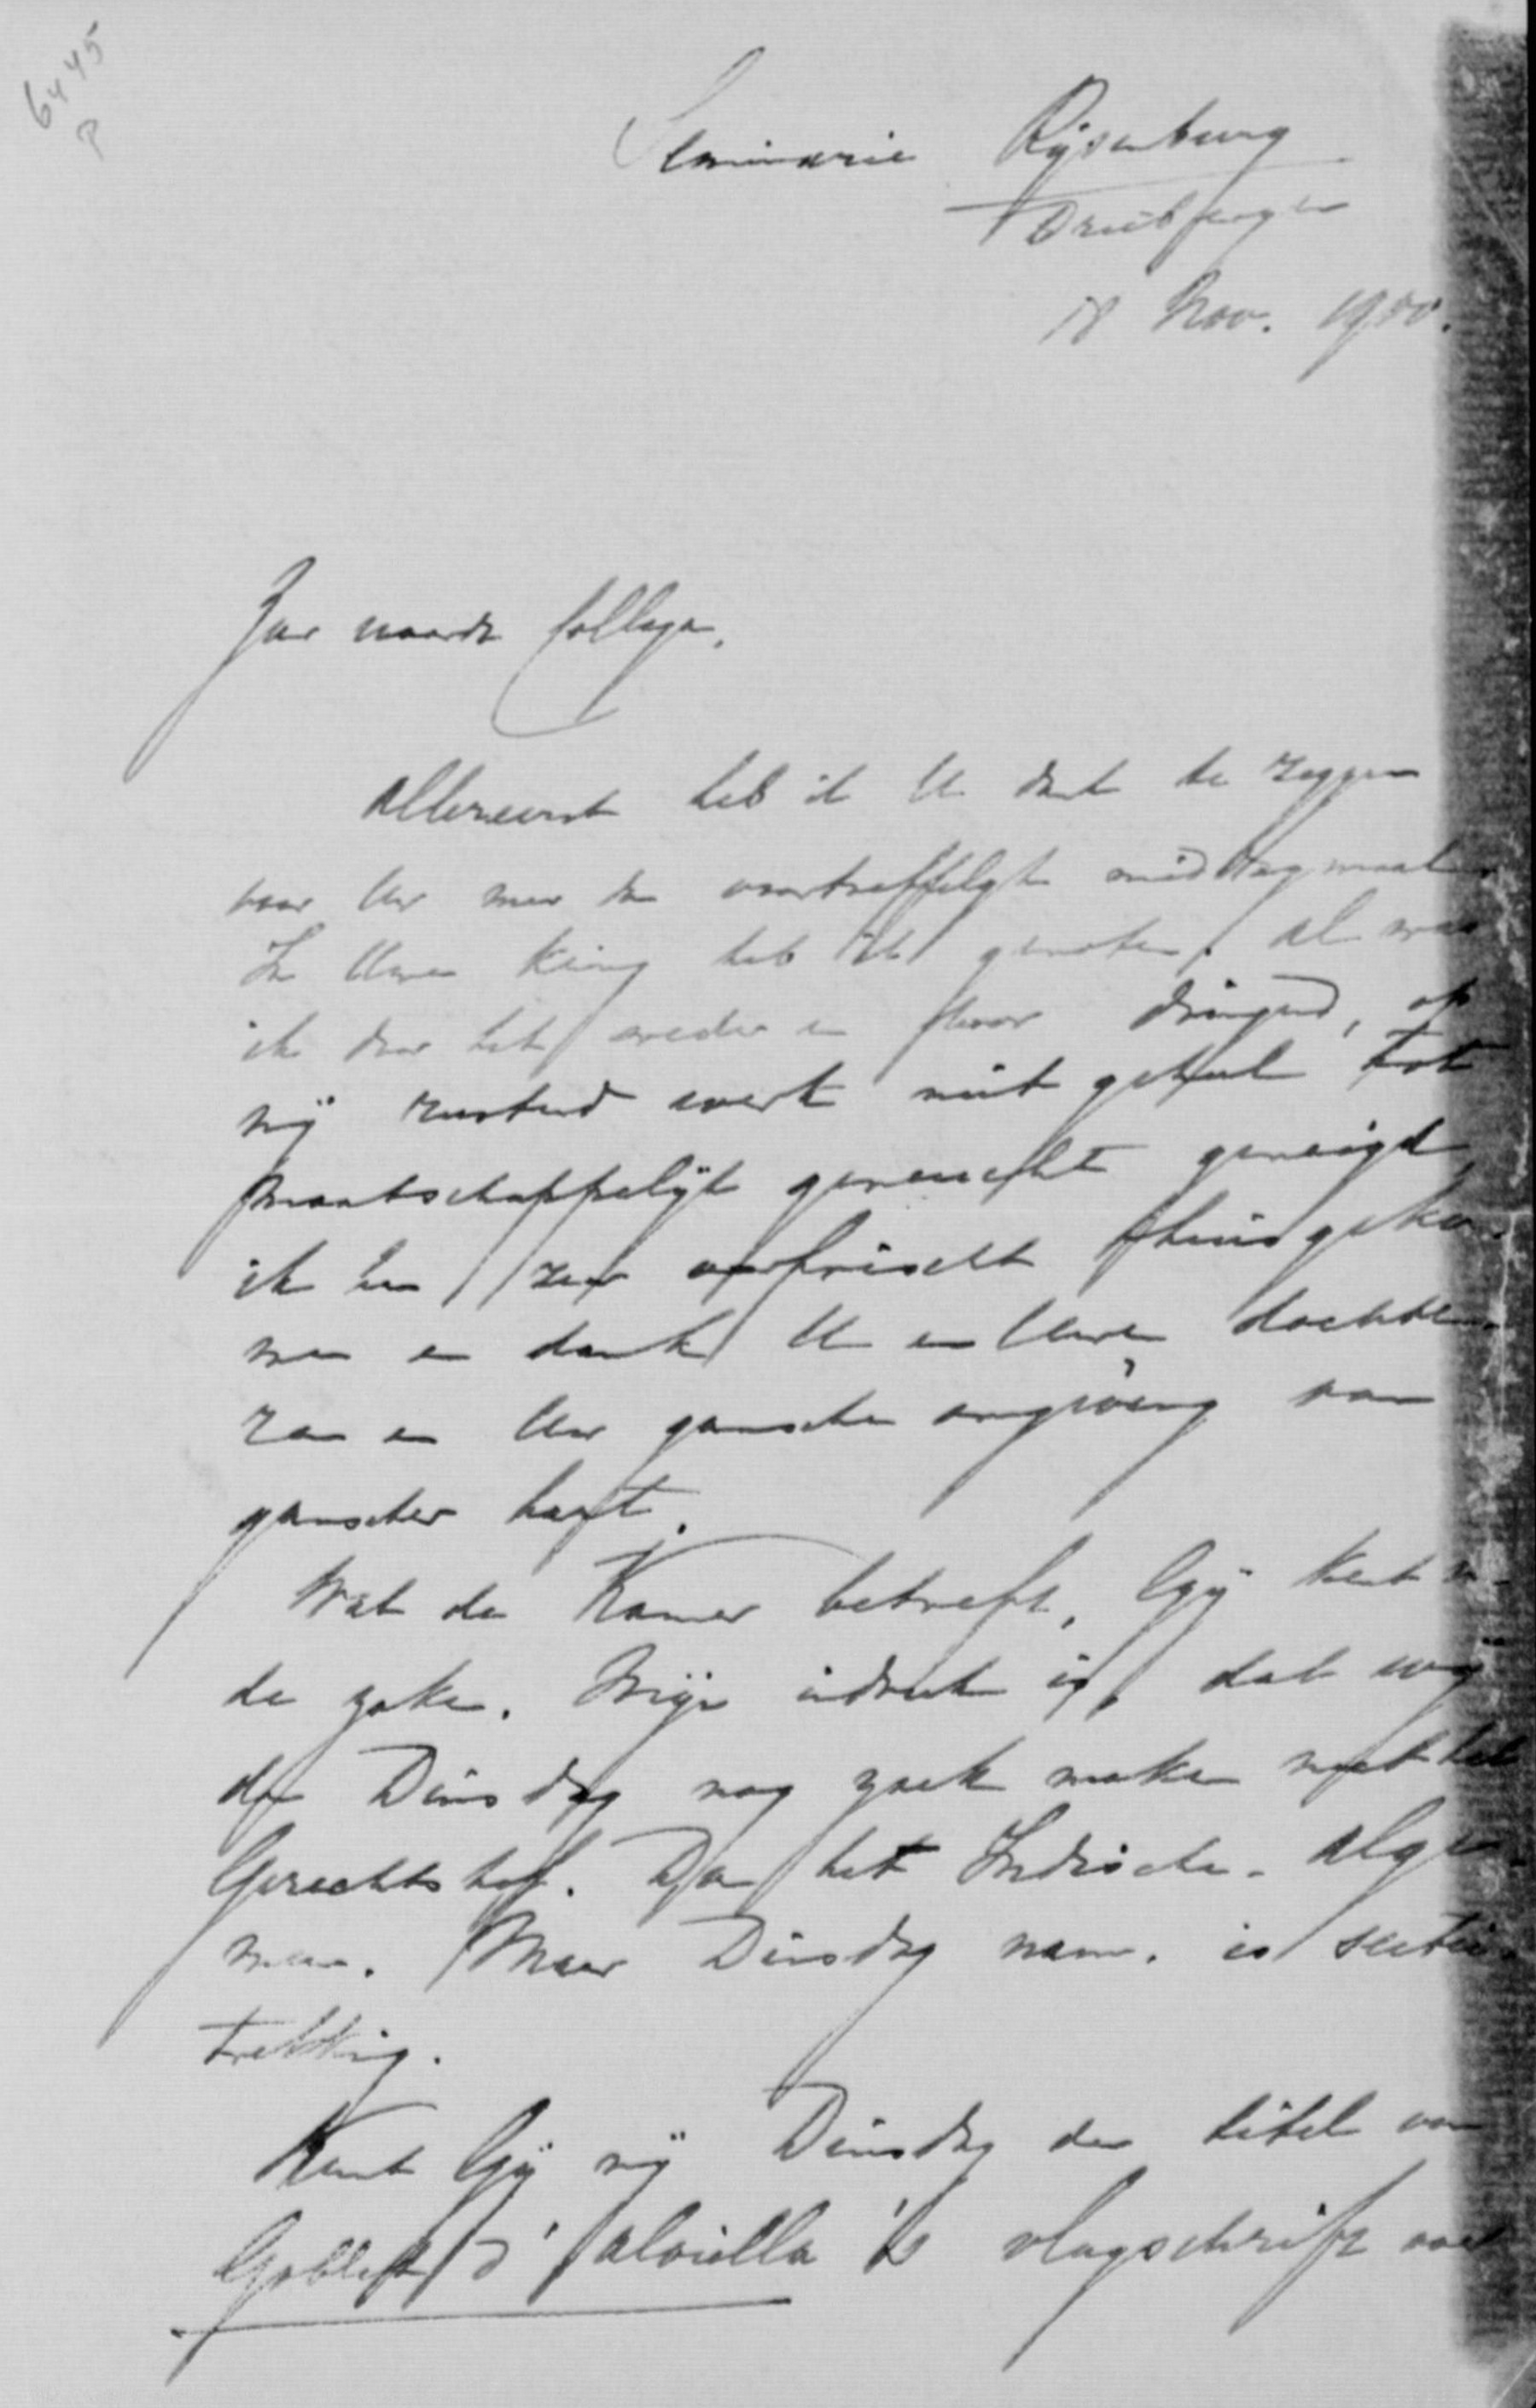 6445
P
Seminarie Rijsenburg
Driebergen
18 Nov. 1900.
Zeer waarde Collega,
Allereerst heb ik U dank te zeggen
voor Uw meer dan voortreffelijk middagmaal.
In Uwen kring heb ik genoten. Al was
ik door het weder en door dringend, op
mij rustend werk niet geheel tot
maatschappelijk geneigd,
ik ben zeer verfrischt thuis geko-
men en dank U en Uwe dochter
en Uw gansche omgeving van
ganscher hart.
Wat de Kamer betreft, Gij kent
de zaken. Mijn indruk is, dat wij
den Dinsdag nog zoek maken met het
Gerechtshof. Dan het Indische. Alge-
meen. Maar Dinsdag nam. is sectie-
trekking.
Kunt Gij mij Dinsdag den titel van
Goblet d'Alviella's vlugschrift